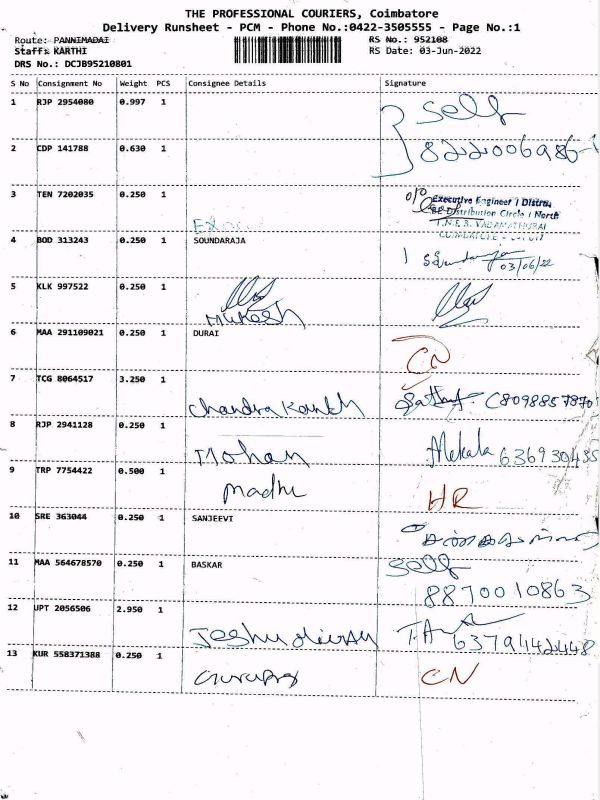 THE PROFESSIONAL COURIERS, Coimbatore
Delivery Runsheet - PCM - Phone No.:0422-3505555 - Page No.:1
Route: PANNIMADAI RS No.: 952108
Staff: KARTHI RS Date: 03-Jun-2022
DRS No.: DCJB95210801
S No Consignment No Weight PCS Consignee Details Signature
1 RJP 2954080 0.997 1 Self
2 CDP 141788 0.630 1
3 TEN 7202035 0.250 1 Executive Engineer / Distrn
Distribution Circle / North
4 BOD 313243 0.250 1 SOUNDARAJA
03/06/22
5 KLK 997522 0.250 1 Mukesh
6 MAA 291109021 0.250 1 DURAI CN
7 TCG 8064517 3.250 1 Chandra Kanth
8 RJP 2941128 0.250 1 Mohan Mekala
9 TRP 7754422 0.500 1 Madhu HR
10 SRE 363044 0.250 1 SANJEEVI
11 MAA 564678570 0.250 1 BASKAR Self
8870010863
12 UPT 2056506 2.950 1
13 KUR 558371388 0.250 1 CN